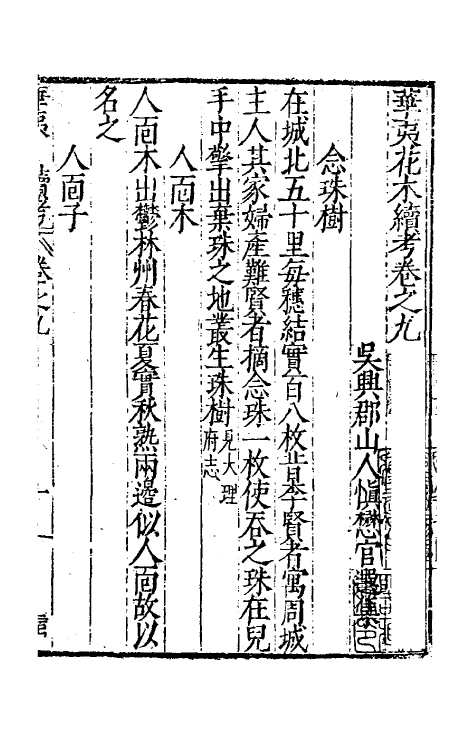 華夷花木續考卷之九
吳興郡山人慎懋官選集
念珠樹
在城北五十里每穗結實百八枚昔李賢者寓周城
主人其家婦產難賢者摘念珠一枚使吞之珠在兒
手中擎出棄珠之地叢生珠樹見大理
府志
人面木
人面木出鬱林州春花夏實秋熟兩邊似人面故以
名之
人面子
華夷 續考 卷之九
一